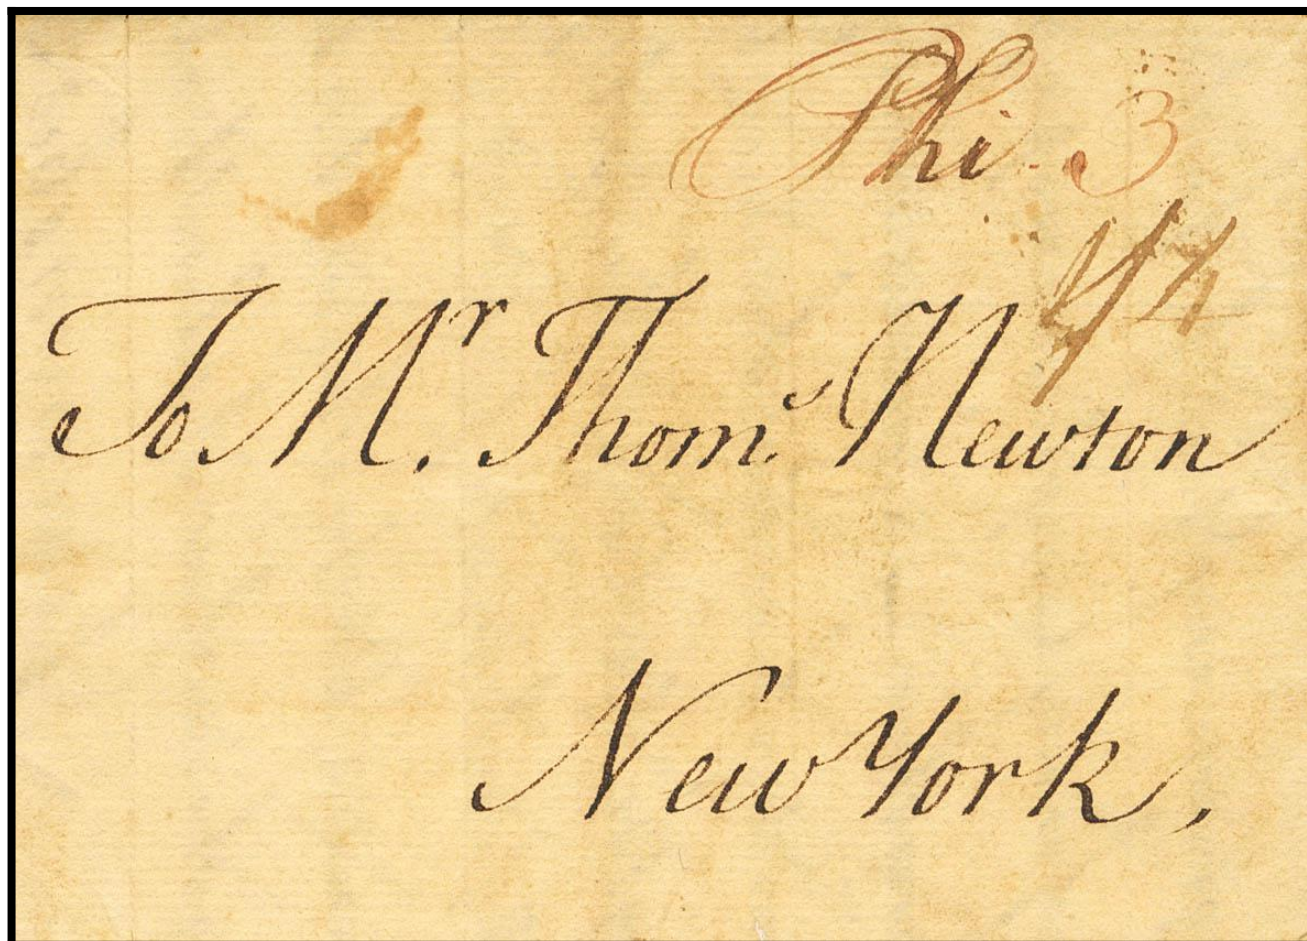 Phi. 3
To Mr. Thom.s Newton
New York.